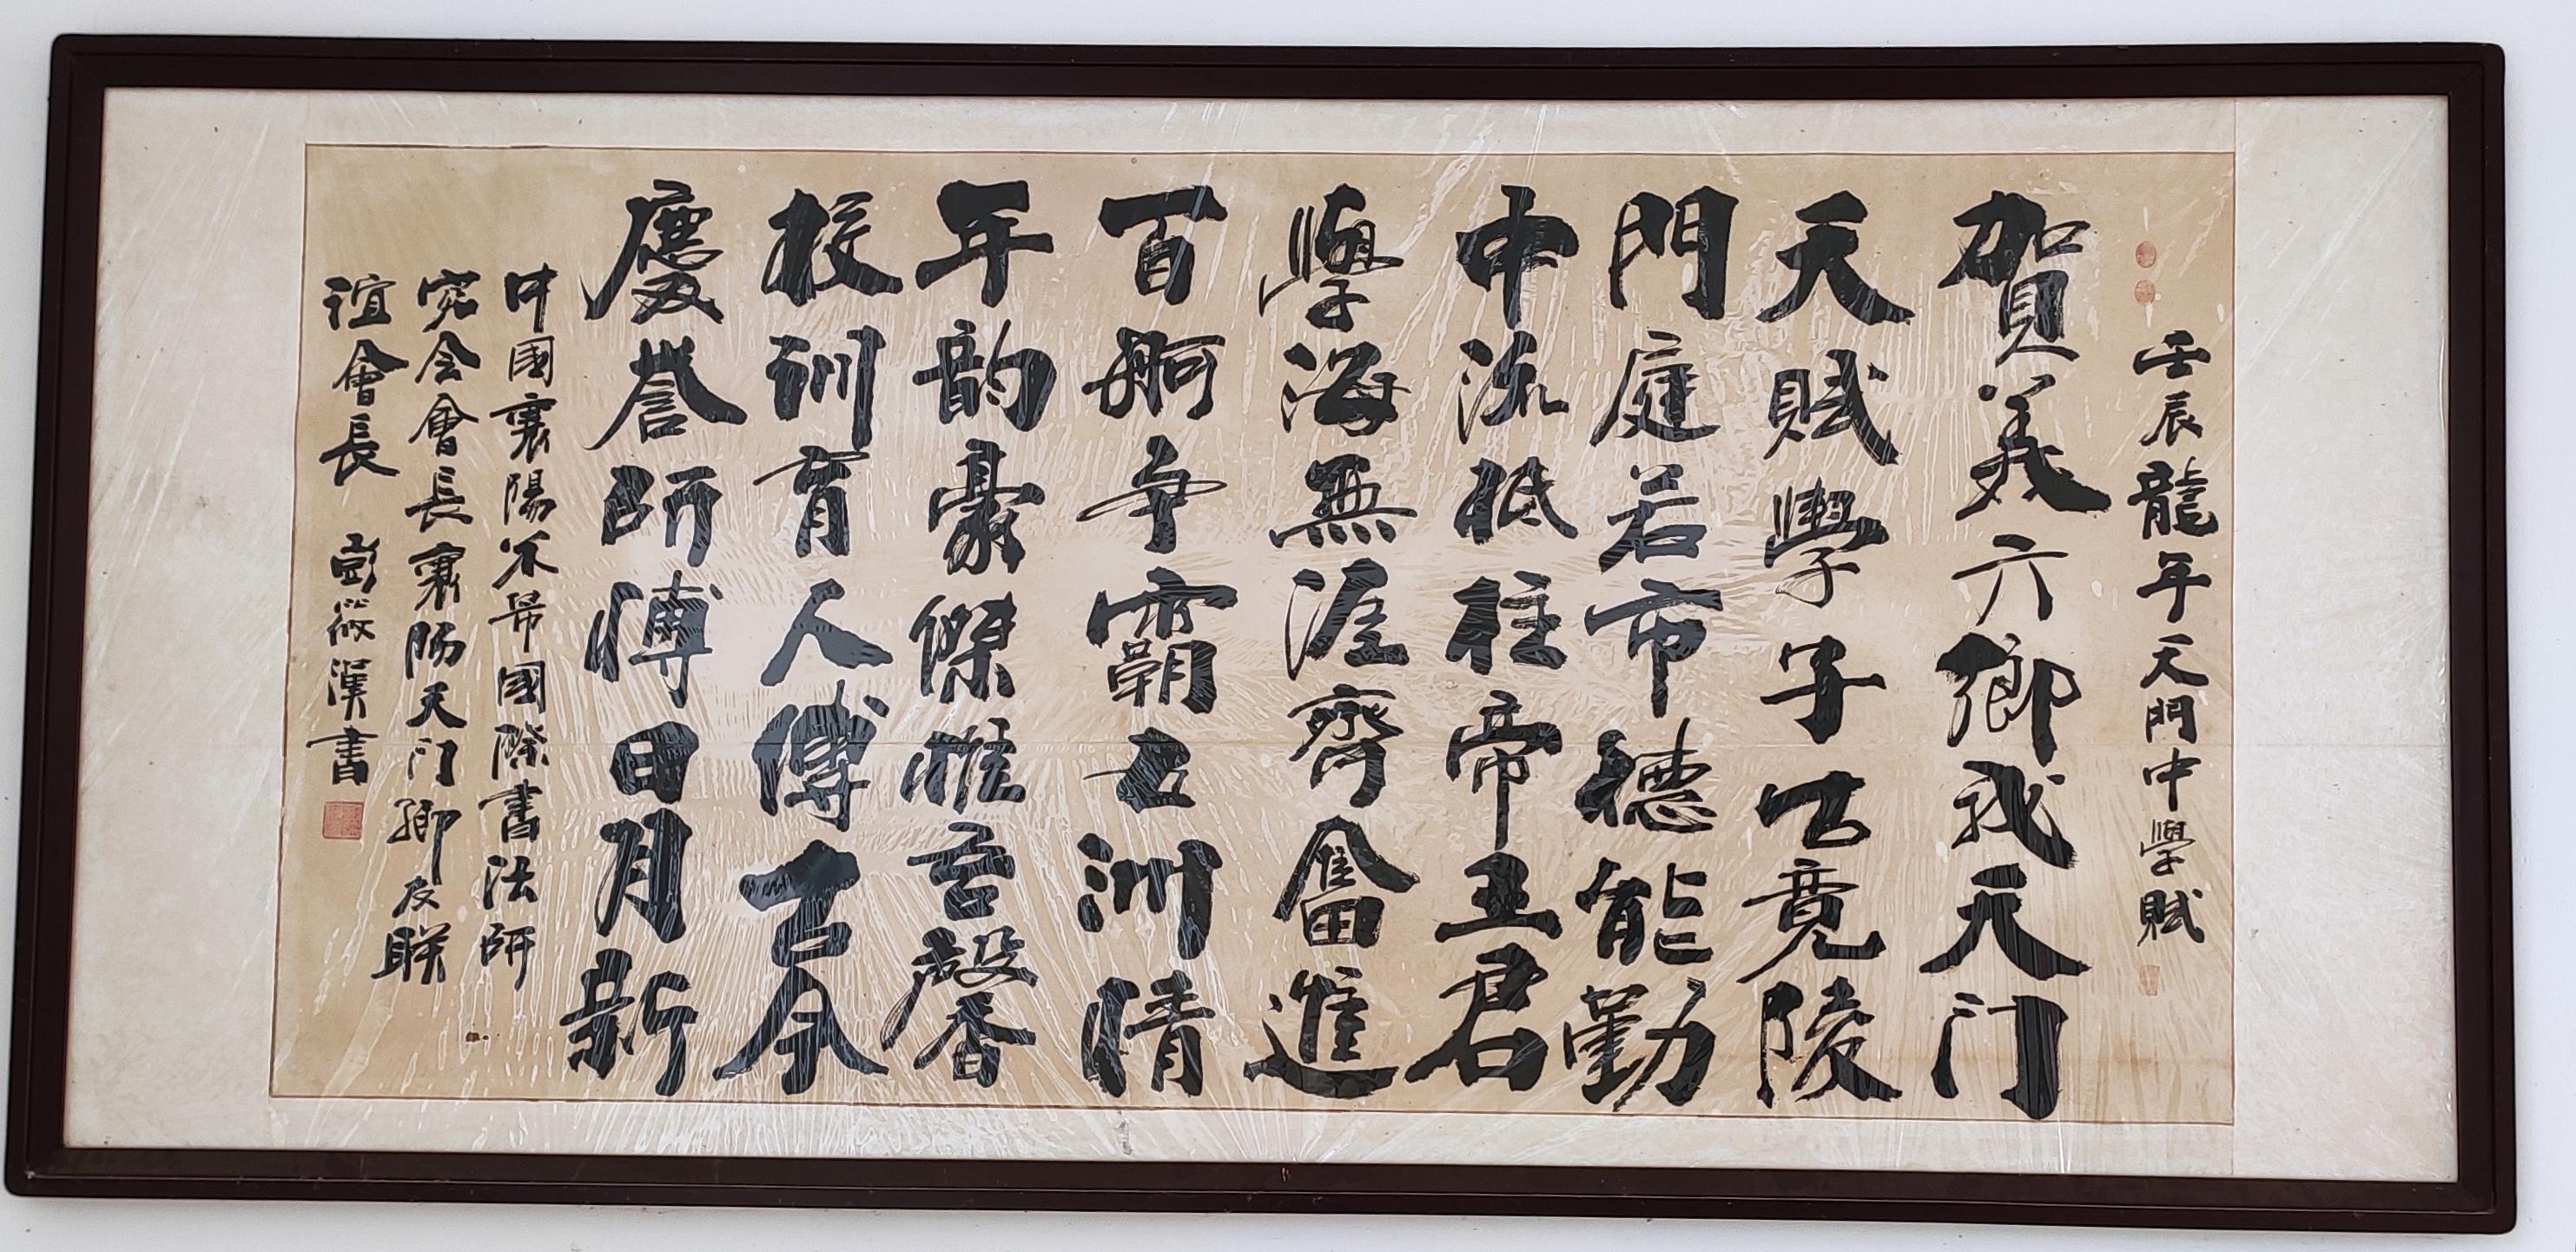 壬辰龍年天門中學賦
賀義六鄉我天门
天賦學子公竟陵
門庭若市德能勤
中流砥柱帝王君
學海無涯齊奮進
百舸争霸五洲情
年韵豪傑惟吾馨
校訓育人傳古今
慶誉師博日月新
中國襄陽米芾國際書法研
究会會長襄陽天门鄉友联
谊會長 彭筱漢書